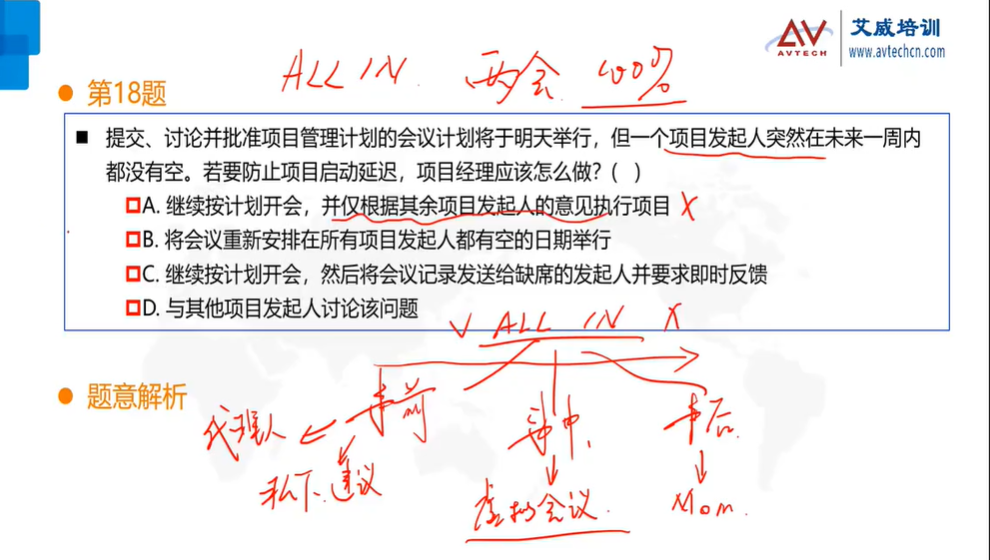 AVTECH
艾威培训
www.avtechcn.com
ALL IN 两会 100%
第18题
提交、讨论并批准项目管理计划的会议计划将于明天举行，但一个项目发起人突然在未来一周内
都没有空。若要防止项目启动延迟，项目经理应该怎么做？( )
A. 继续按计划开会，并仅根据其余项目发起人的意见执行项目 X
B. 将会议重新安排在所有项目发起人都有空的日期举行
C. 继续按计划开会，然后将会议记录发送给缺席的发起人并要求即时反馈
D. 与其他项目发起人讨论该问题
V ALL IN X
题意解析
代理人 事前 事中 事后
私下建议 虚拟会议 Mom